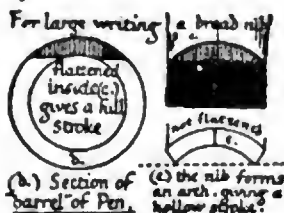 For large writing
a broad nib
flattened
inside (c.)
gives a full
stroke
b.
not flattened
c.
(b.) Section of
"barrel" of Pen.
(c) the nib forms
an arch, giving a
hollow stroke.